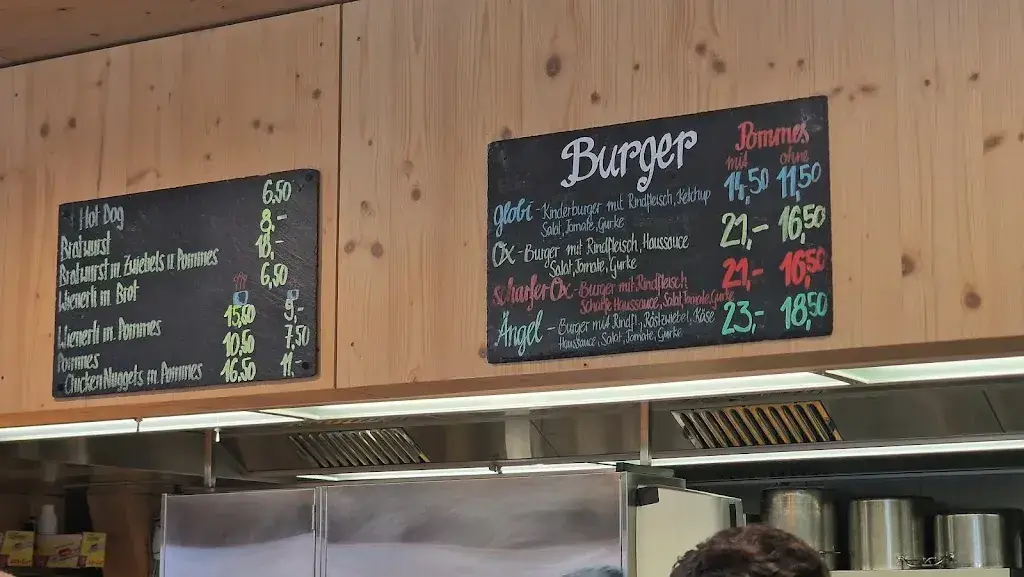 Hot Dog 6.50
Bratwurst 8.-
Bratwurst m. Zwiebels u Pommes 18,-
Wienerli m. Brot 6,50
Wienerli m. Pommes 15,50 9,-
Pommes 10,50 7,50
Chicken Nuggets m. Pommes 16.50 11,-
Burger Pommes
mit ohne
globi - Kinderburger mit Rindfleisch, Ketchup 14,50 11,50
Salat, Tomate, Gurke
Ox - Burger mit Rindfleisch, Haussauce 21,- 16,50
Salat, Tomate, Gurke
scharfer Ox - Burger mit Rindfleisch 21,- 16,50
Scharfe Haussauce, Salat, Tomate, Gurke
Ängel - Burger mit Rindfl., Röstzwiebel, Käse 23,- 18,50
Haussauce, Salat, Tomate, Gurke